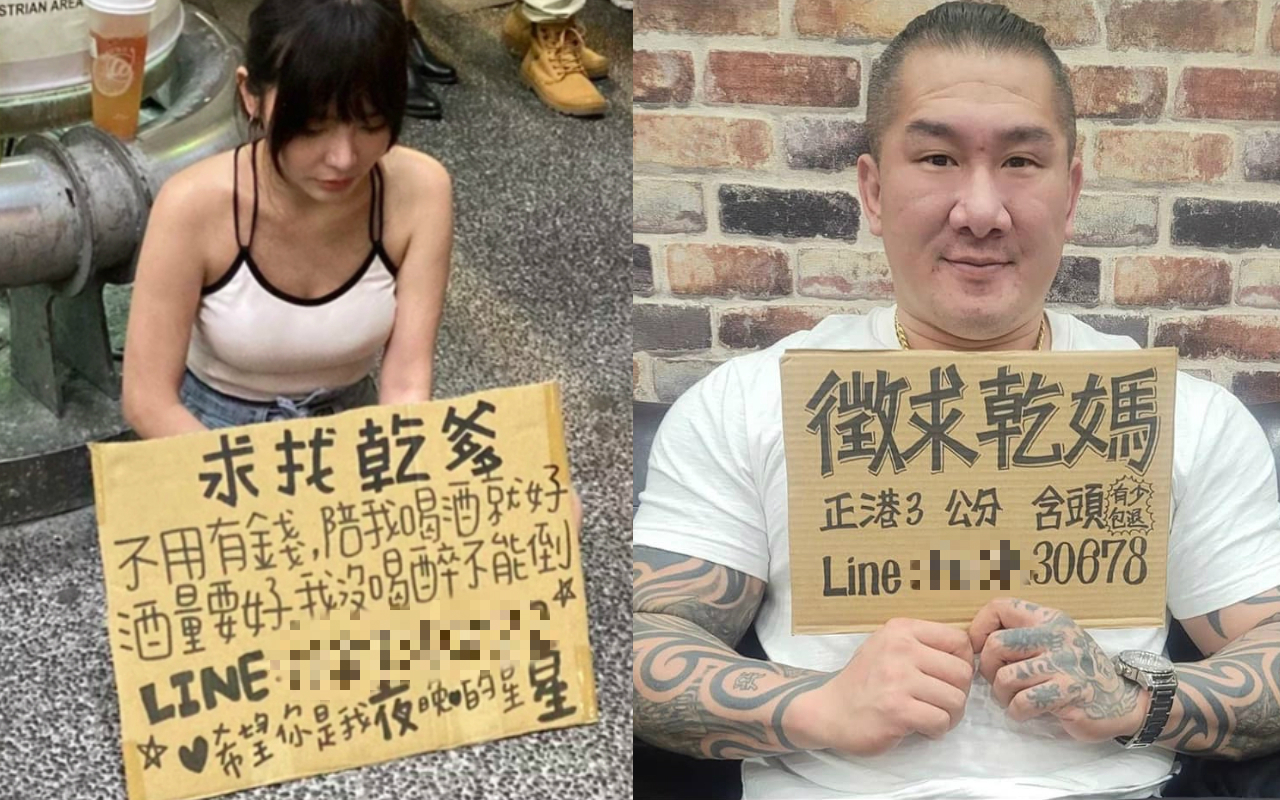 STRIAN AREA
求找乾爹
不用有錢,陪我喝酒就好
酒量要好我沒喝醉不能倒
LINE
希望你是我夜晚的星星
徵求乾媽
正港3公分 含頭 有少包退
Line: 30678